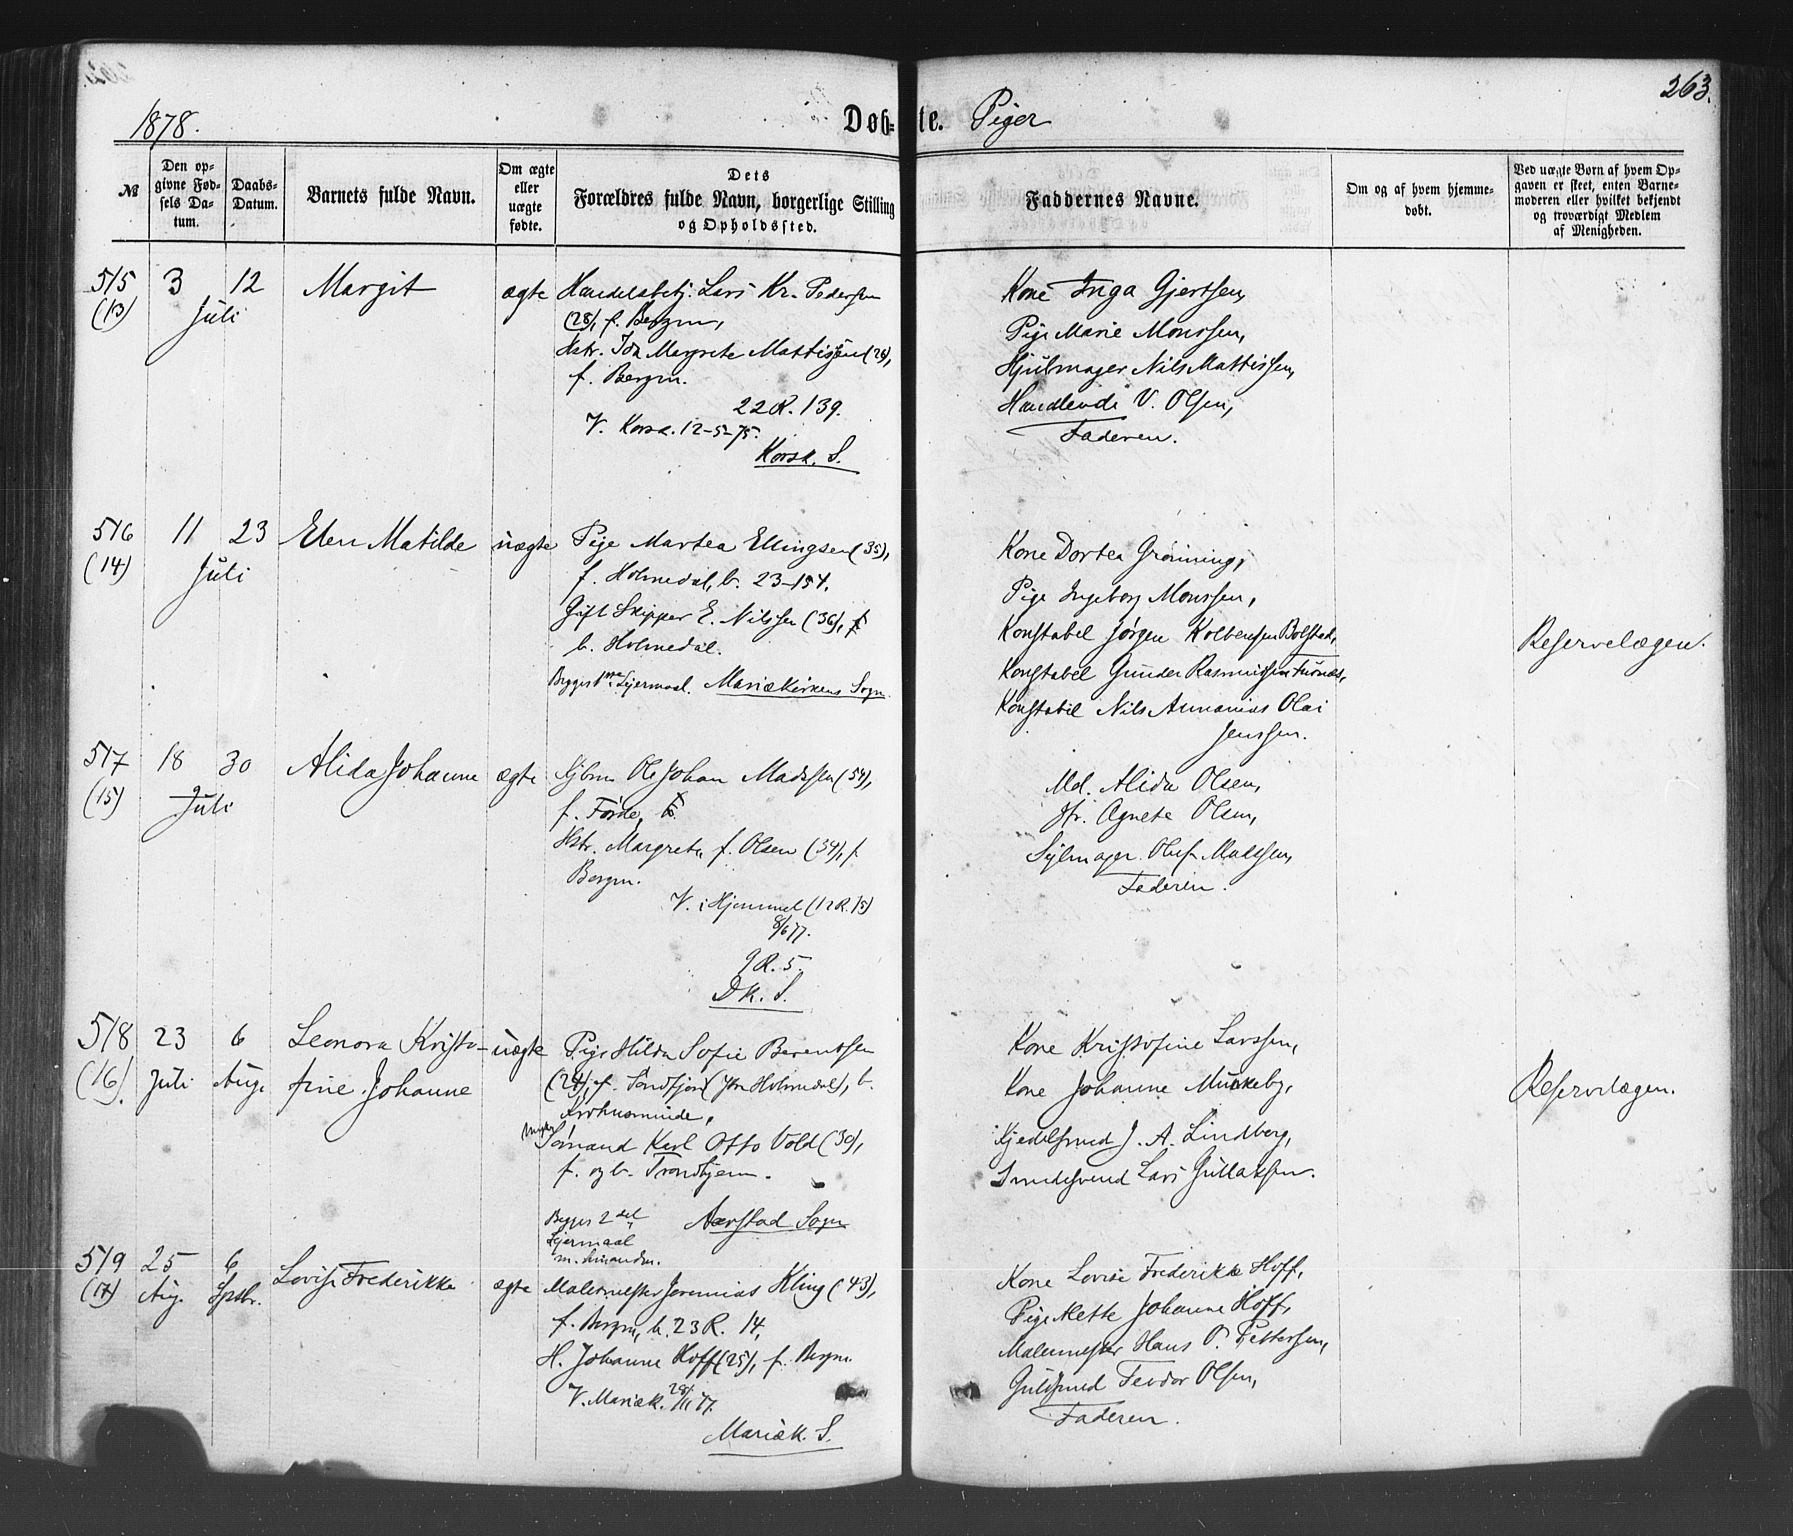 263.
1878.
Døb- te. Piger
№
Den op-
givne Fød-
sels Da-
tum.
Daabs-
Datum.
Barnets fulde Navn.
Om ægte
eller
uægte
fødte.
Dets
Forældres fulde Navn, borgerlige Stilling
og Opholdssted.
Faddernes Navne.
Om og af hvem hjemme-
døbt.
Ved uægte Børn af hvem Op-
gaven er skeet, enten Barne-
moderen eller hvilket bekjendt
og troværdigt Medlem
af Menigheden.
515 3 12 Margit ægte Handelsbetj. Lars Kr. Pedersen
(13) Juli
(28), f. Bergen,
Hstr. Ida Margrete Mattissen (28),
f. Bergen.
22 R. 139.
V. Korsk. 12-5-75.
Korsk. S.
Kone Inga Gjertsen,
Pige Marie Monssen,
Hjulmager Nils Mattissen,
Handlende V. Olsen,
Faderen.
516 11 23 Elen Matilde uægte Pige Martea Ellingsen (35),
(14) Juli
f. Holmedal, b. 23-154.
Gift Skipper E. Nilssen (36), f
b. Holmedal.
Begges 1ste Lejermaal. Mariækirkens Sogn.
Kone Dortea Grönning,
Pige Ingeborg Monssen,
Konstabel Jørgen Kolbensen Bolstad,
Konstabel Gunder Rasmussen Furnæs,
Konstabel Nils Annanias Olai
Jenssen.
Reservelægen.
517 18 30 Alida Johanne ægte Ole Johan Madssen (54),
(15) Juli
f. Førde,
Hstr. Margrete f. Olsen (34), f.
Bergen.
V. i Hjemmet (12 R. 15)
8/6 77.
9 R. 5.
Dk. S.
Md. Alida Olsen,
Jfr. Agnete Olsen,
Sejlmager Oluf Madssen,
Faderen.
518 23 6 Leonora Kristo- uægte Pige Hilda Sofie Berentsen
(16) Juli Aug. fine Johanne
(24), f. Søndfjord (Ytre Holmedal), b.
Krohusminde,
Ungk. Sømand Karl Otto Vold (30),
f. og b. Trondhjem.
Begges 2det Aarstad Sogn
Lejermaal
m. hinanden.
Kone Kristofine Larssen,
Kone Johanne Munkeby,
Kjedelsmed J. A. Lindberg,
Smedesvend Lars Gullaksen.
Reservelægen.
519 25 6 Lovise Frederikke ægte Malermester Jeremias Kling (43),
(17) Aug. Sptbr.
f. Bergen, b. 23 R. 14,
H. Johanne Hoff (25), f. Bergen.
V. Mariæk. 28/11 77.
Mariæk. S.
Kone Lovise Frederikke Hoff,
Pige Mette Johanne Hoff,
Malermester Hans P. Pettersen,
Guldsmed Teodor Olsen,
Faderen.